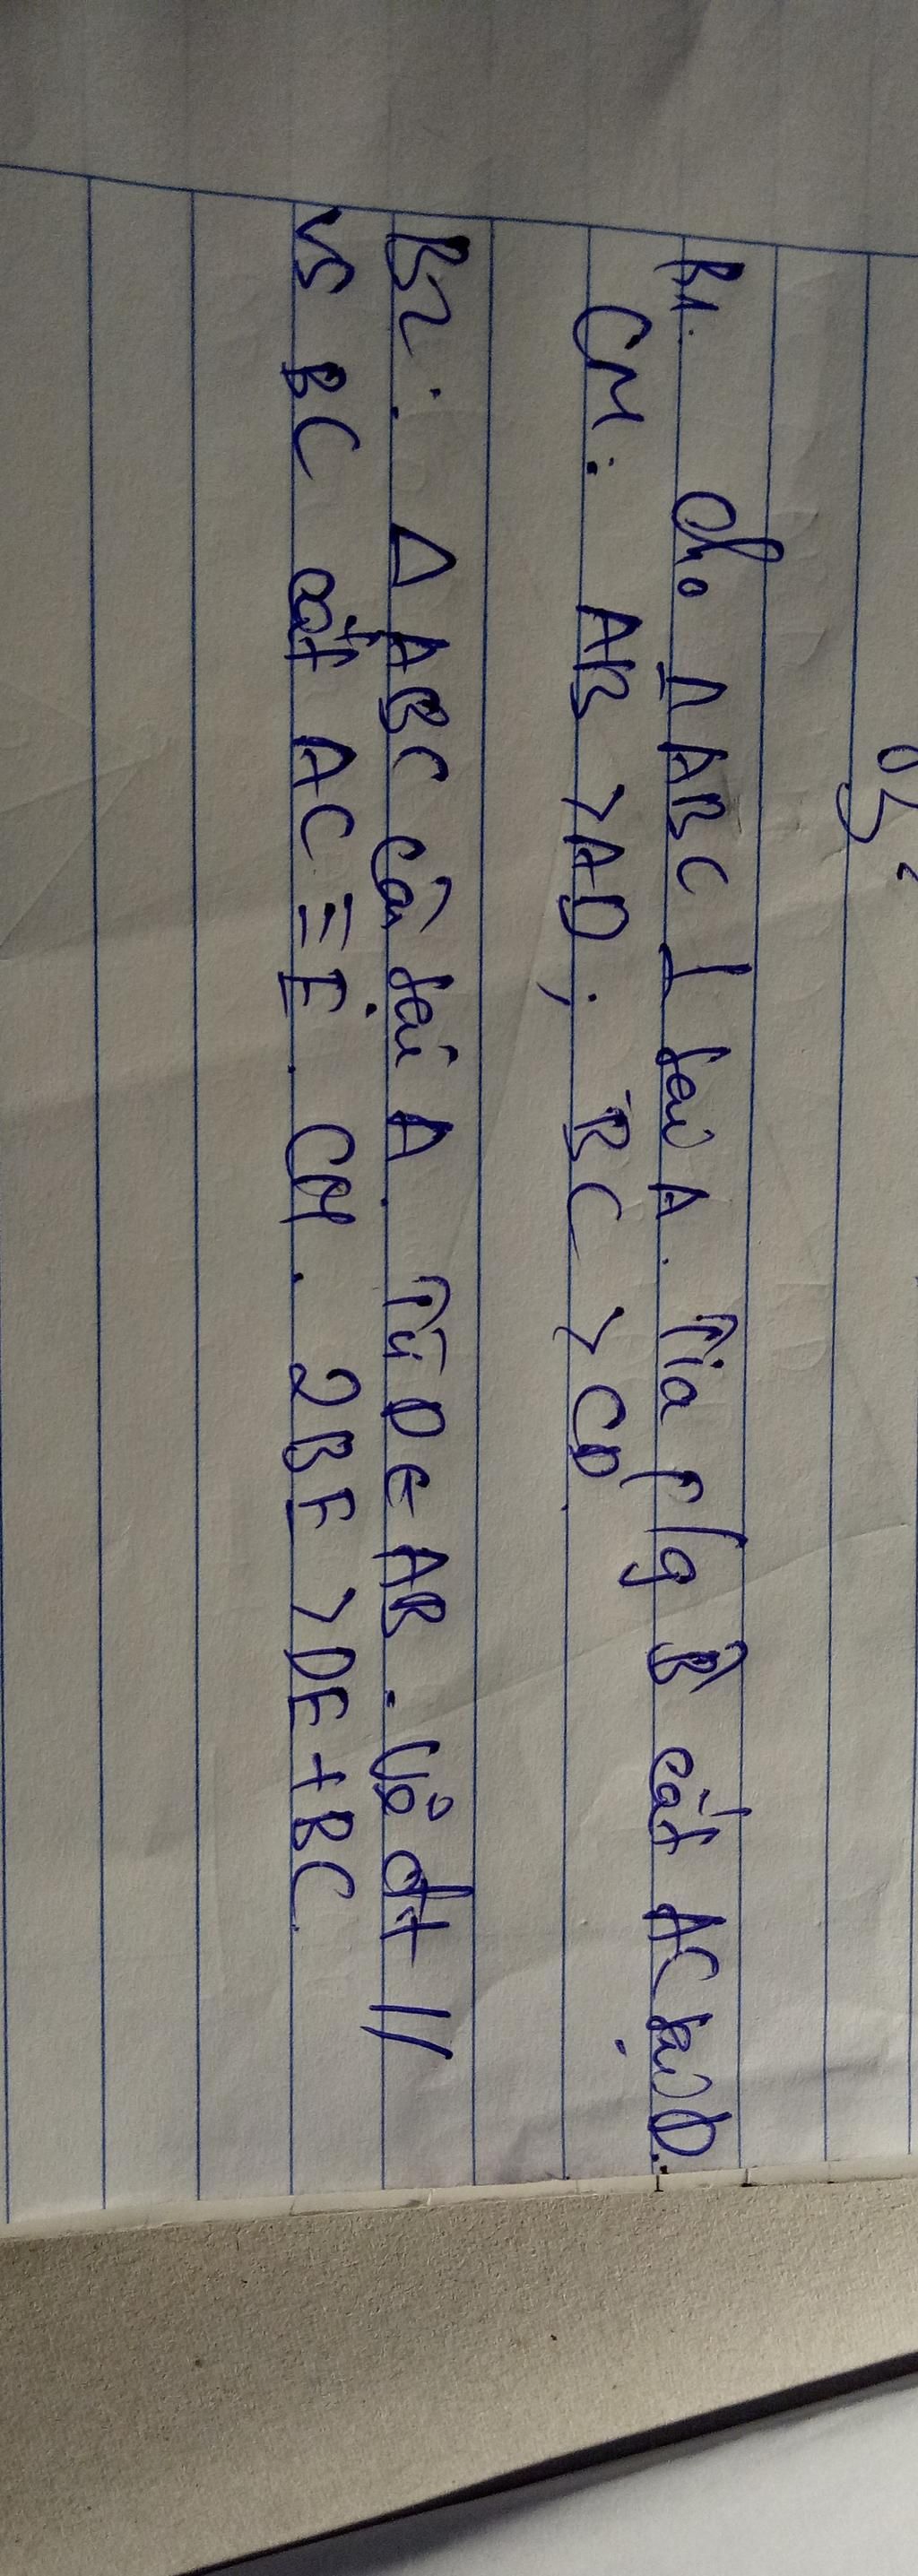 B1. Cho Δ ABC ⊥ tại A. Tia p/g B̂ cắt AC tại D.
CM: AB > AD; BC > CD.
B2: Δ ABC cân tại A. Từ D ∈ AB. Vẽ đt //
vs BC cắt AC ≡ E. CM. 2BE > DE + BC.